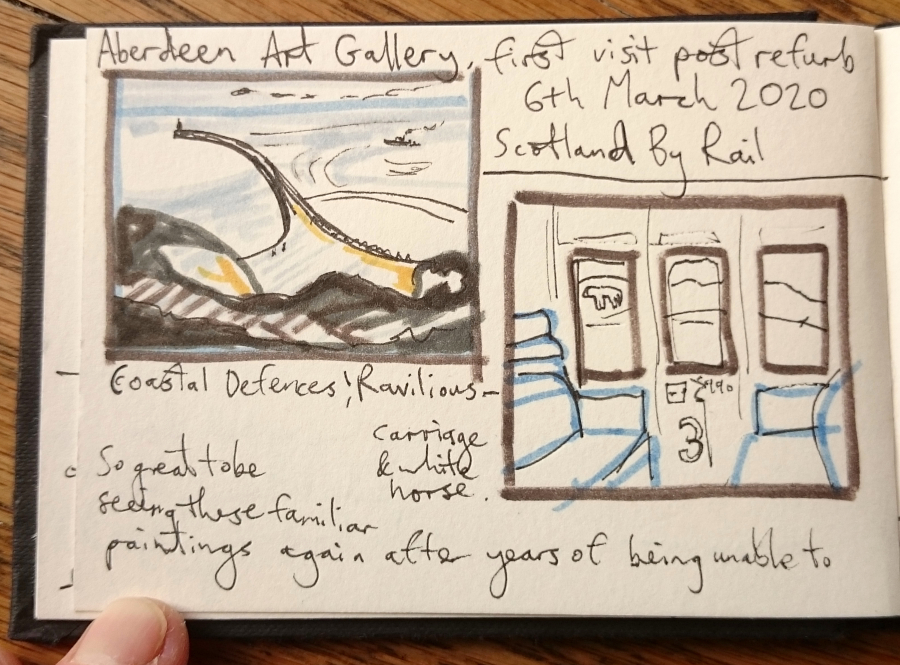 Aberdeen Art Gallery, first visit post refurb
6th March 2020
Scotland By Rail
Coastal Defences', Ravilious -
carriage
& white
horse.
3
So great to be
seeing these familiar
paintings again after years of being unable to